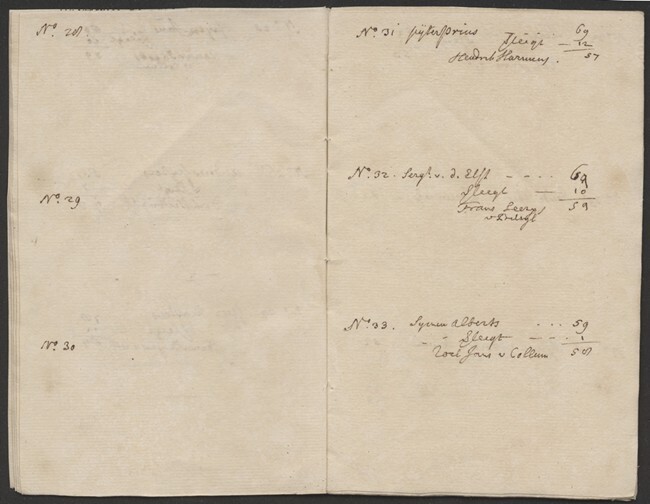 No. 28
No. 29
No. 30
No. 31 pijter prins 69
Sleigt - 12
Hendrik Harmens. 57
No. 32. Sergt. v. d. Elst - - - - 69
Sleigt - 10
Frans 59
No. 33. Symen Alberts ... 59
- - Sleigt - - - 1
Jans v Collum 58